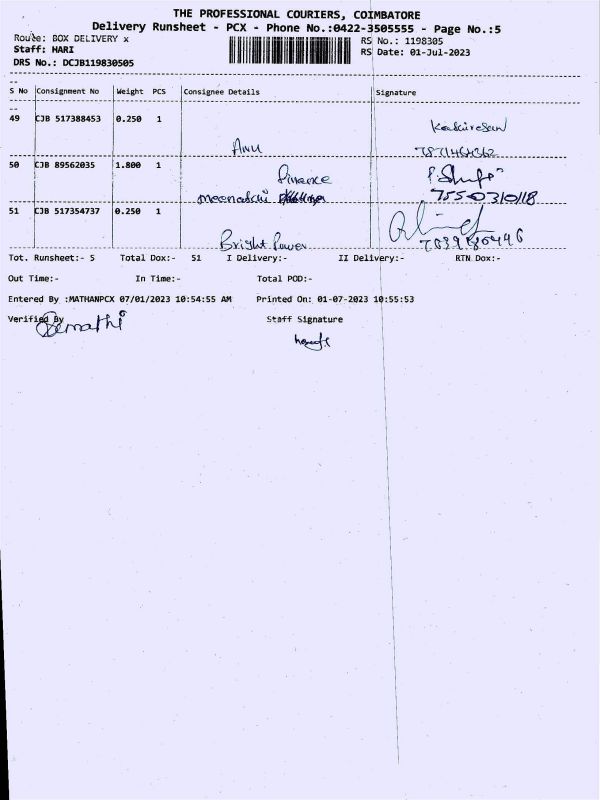 THE PROFESSIONAL COURIERS, COIMBATORE
Delivery Runsheet - PCX - Phone No.:0422-3505555 - Page No.:5
Route: BOX DELIVERY x
RS No.: 1198305
Staff: HARI
RS Date: 01-Jul-2023
DRS No.: DCJB119830505
S No Consignment No Weight PCS Consignee Details Signature
49 CJB 517388453 0.250 1
Anu
50 CJB 89562035 1.800 1
Finance
meenakshi
7550310118
51 CJB 517354737 0.250 1
Bright Power
Tot. Runsheet:- 5 Total Dox:- 51 I Delivery:- II Delivery:- RTN Dox:-
Out Time:- In Time:- Total POD:-
Entered By :MATHANPCX 07/01/2023 10:54:55 AM Printed On: 01-07-2023 10:55:53
Verified By Staff Signature